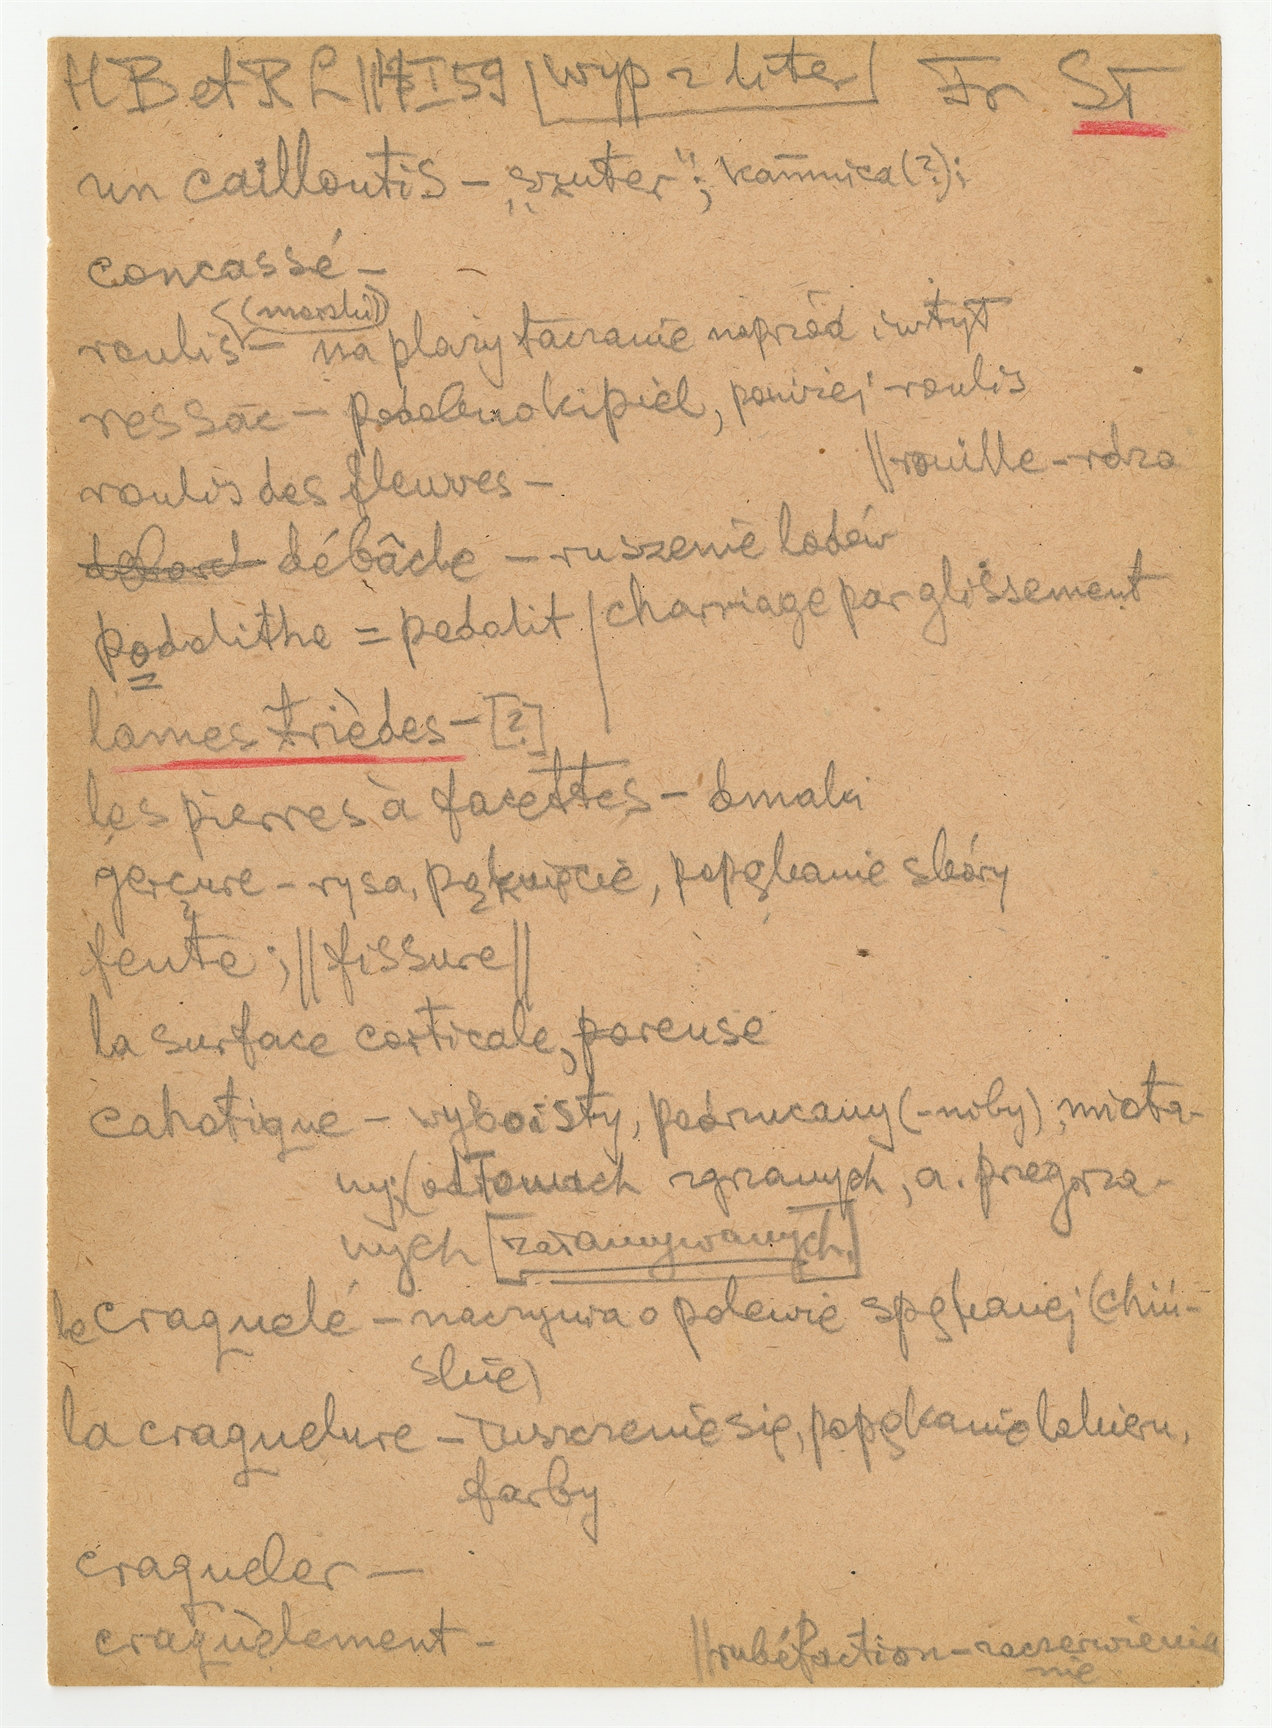 H B et R L || 13 I 59 [wyp z liter] Fr ST
un cailloutis – „szuter”; kamnica (?);
concassé –
(morski)
roulis – na plaży taczanie naprzód i wtył
ressac – podobno kipiel, poniżej roulis
|| rouille – rdza
roulis des fleuves –
débord débâcle – ruszenie lodów
podolithe = pedolit / charriage par glissement
lames trièdes – [?]
les pierres à facettes –
gerçure – rysa, pęknięcie, popękanie skóry
fente; || fissure ||
la surface corticale, poreuse
cahotique – wyboisty, podrzucany (-niby); miota-
ny; (odłomach zgrzanych, a. przegrza-
nych [załamywanych]
le craquelé – naczynia o polewie spękanej (chiń-
skie)
la craquelure – łuszczenie się, popękanie lakieru,
farby
craqueler –
craquèlement –
|| rubéfaction – zaczerwienie
nie